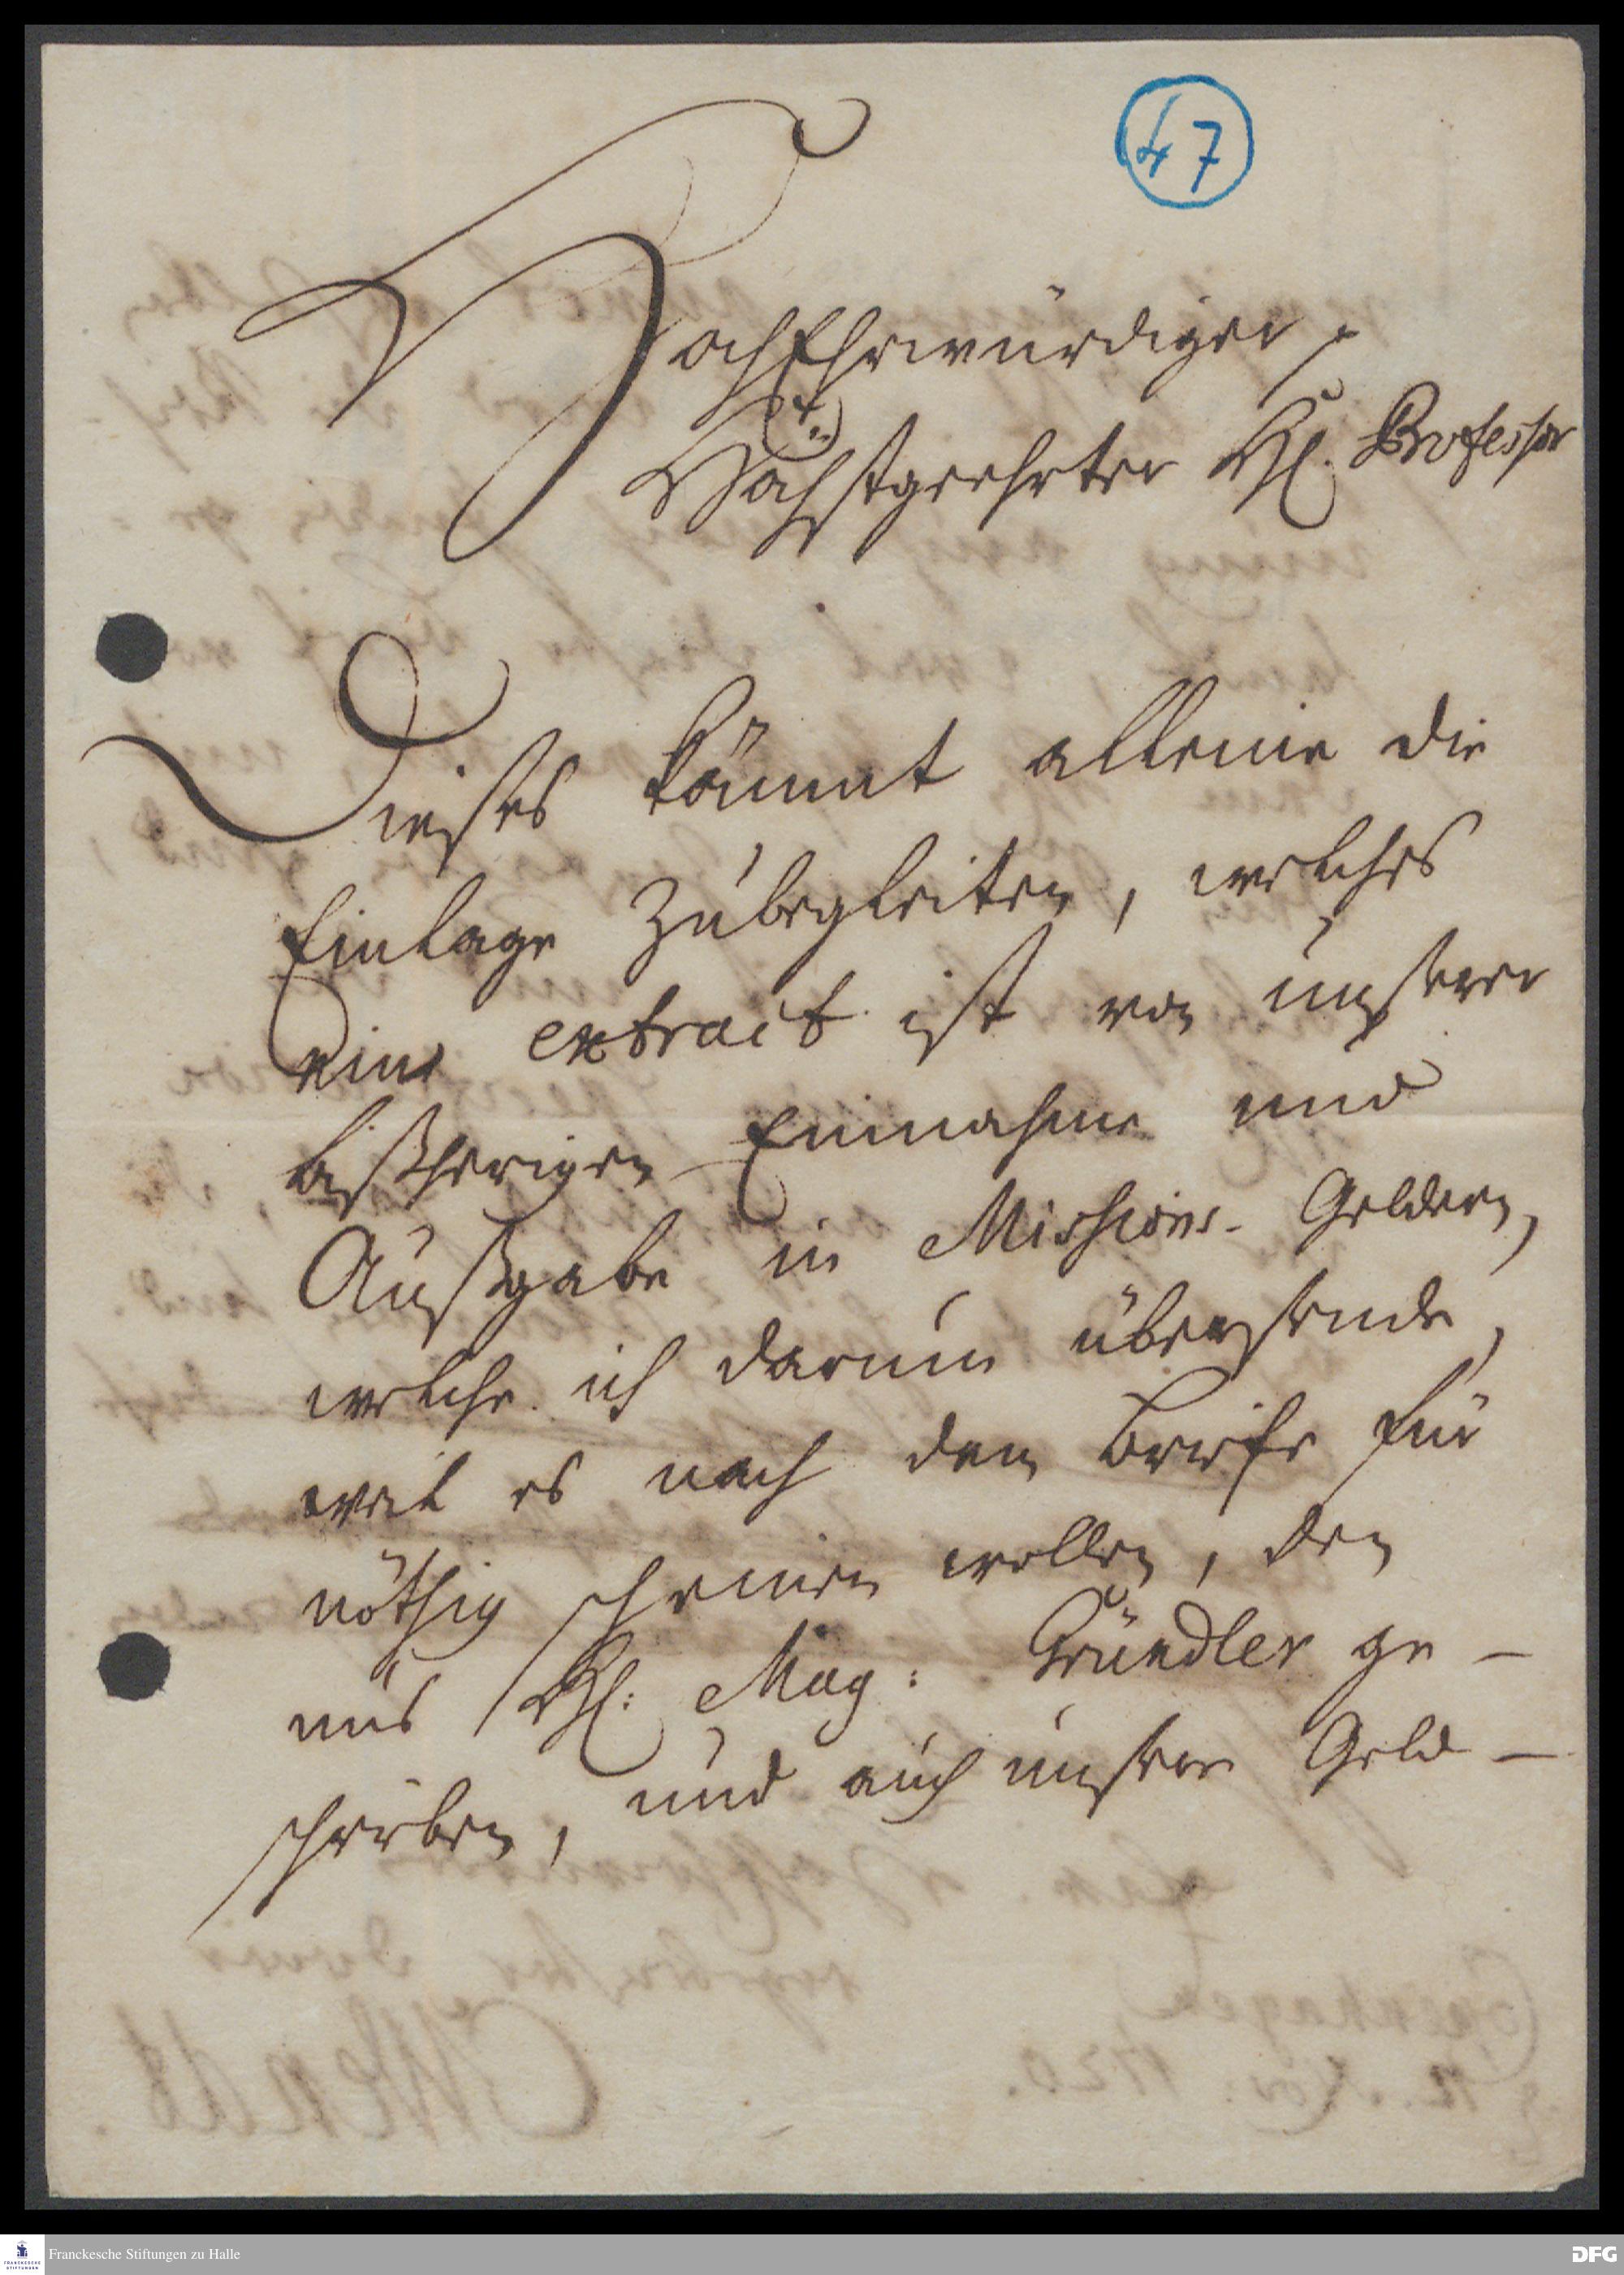 47
HochEhrwürdiger,
Höchstgeehrter H. Professor
Dieses kömmt alleine die
Einlage zubegleiten, welches
eine extract ist von unserer
bißherigen Einnahme und
Außgabe in Missions-Geldern,
welche ich darum übersende,
weil es nach dem Briefe für
nöthig scheinen wollen, den
uns H: Mag: Gründler ge-
schrieben, und auch unsere Geld-
Franckesche Stiftungen zu Halle
DFG